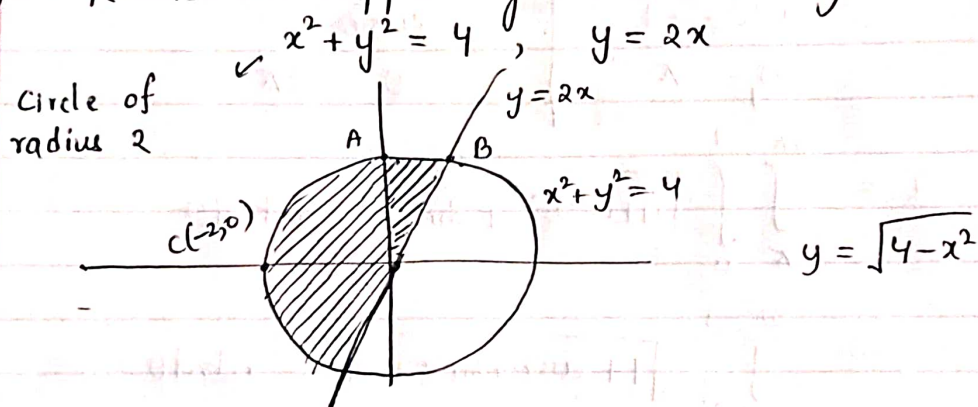 x² + y² = 4 , y = 2x
Circle of
radius 2
y = 2x
A
B
x² + y² = 4
C(-2,0)
y = √4-x²